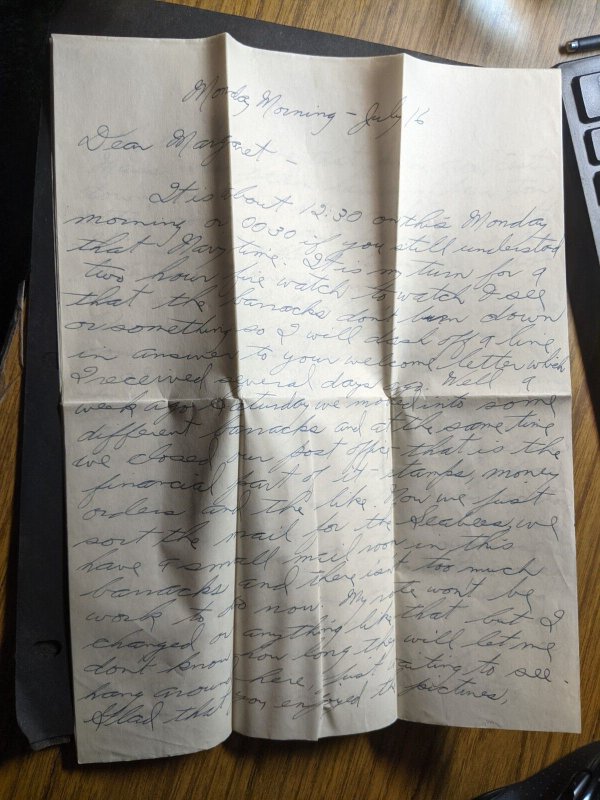 Monday Morning - July 16
Dear Margaret -
It is about 12:30 on this Monday
morning or 0030 if you still understood
that Navy time. It is my turn for a
two hour fire watch to watch I see
that the barracks don't burn down
or something so I will dash off a line
in answer to your welcome letter which
I received several days ago. Well a
week ago Saturday we moved into some
different barracks and at the same time
we closed our post office that is the
financial part of it - stamps, money
orders and the like. Now we just
sort the mail for the Seabees, we
have a small mail room in this
barracks and there isn't too much
work to do now. My rate won't be
changed or anything like that but I
don't know how long they will let me
hang around here, just waiting to see.
Glad that you enjoyed the pictures,